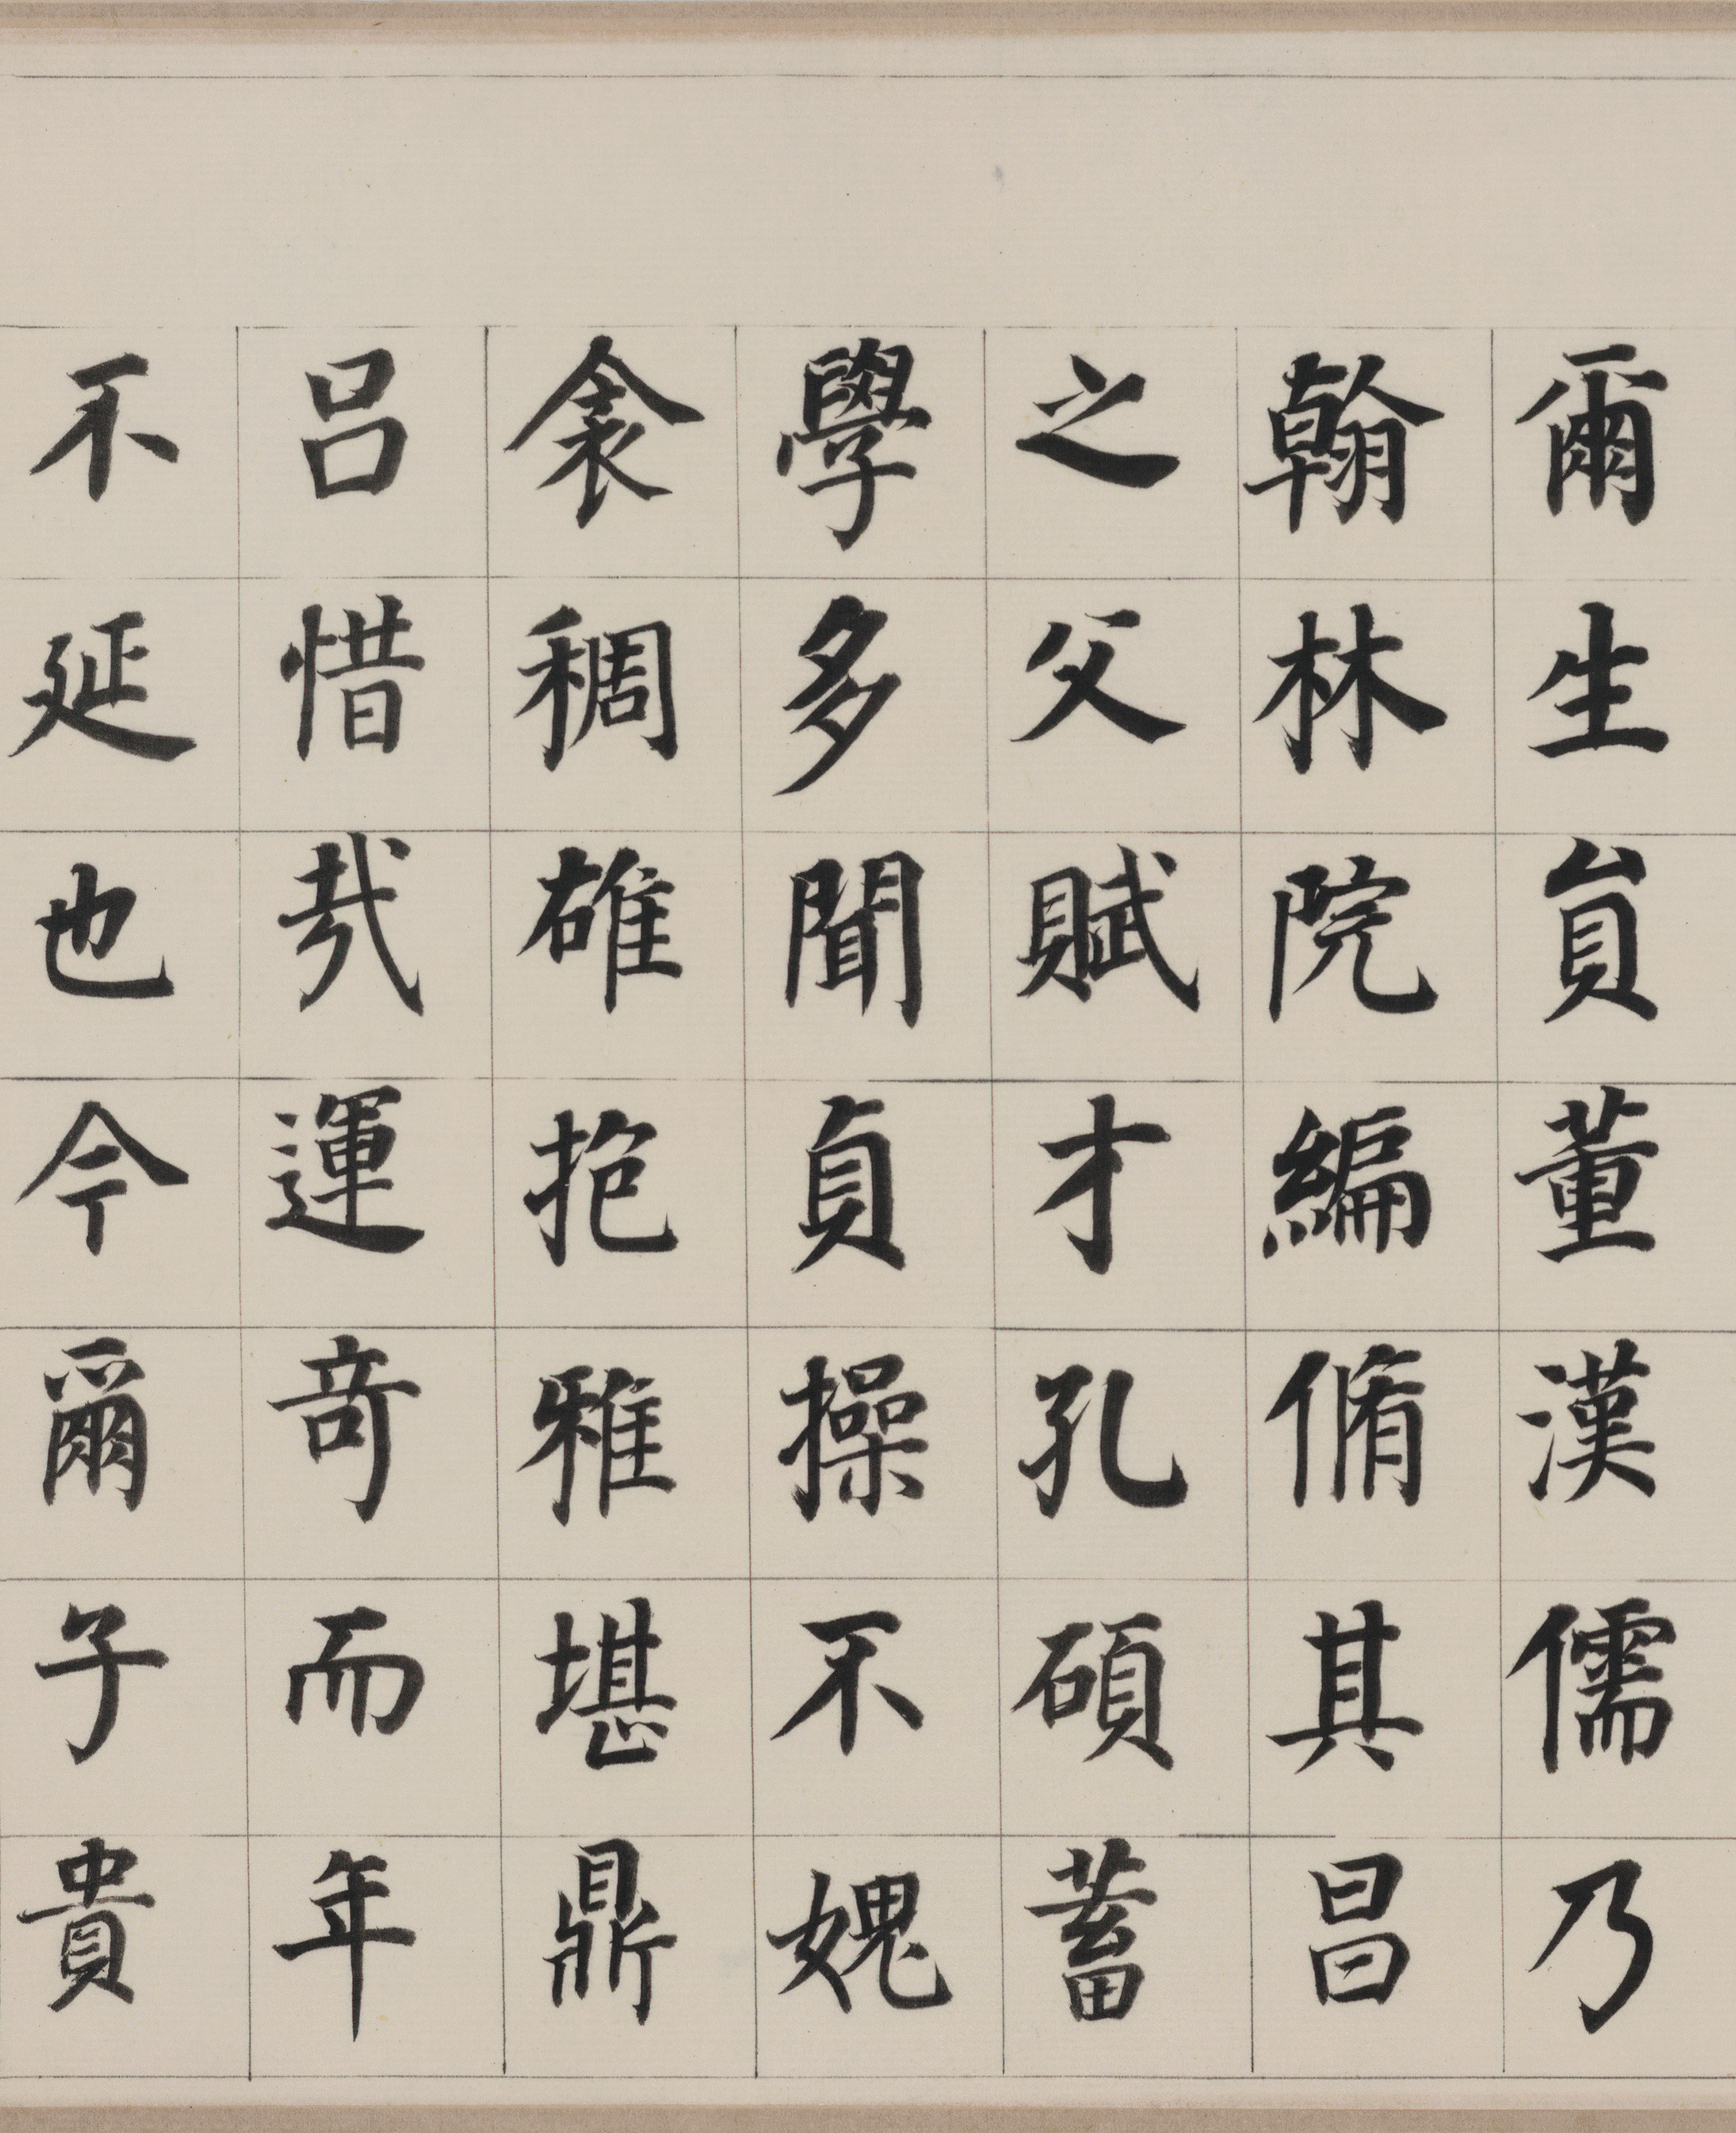 爾生員董漢儒乃
翰林院編脩其昌
之父賦才孔碩蓄
學多聞貞操不媿
衾稠雄抱雅堪鼎
呂惜㦲運竒而年
不延也今爾子貴